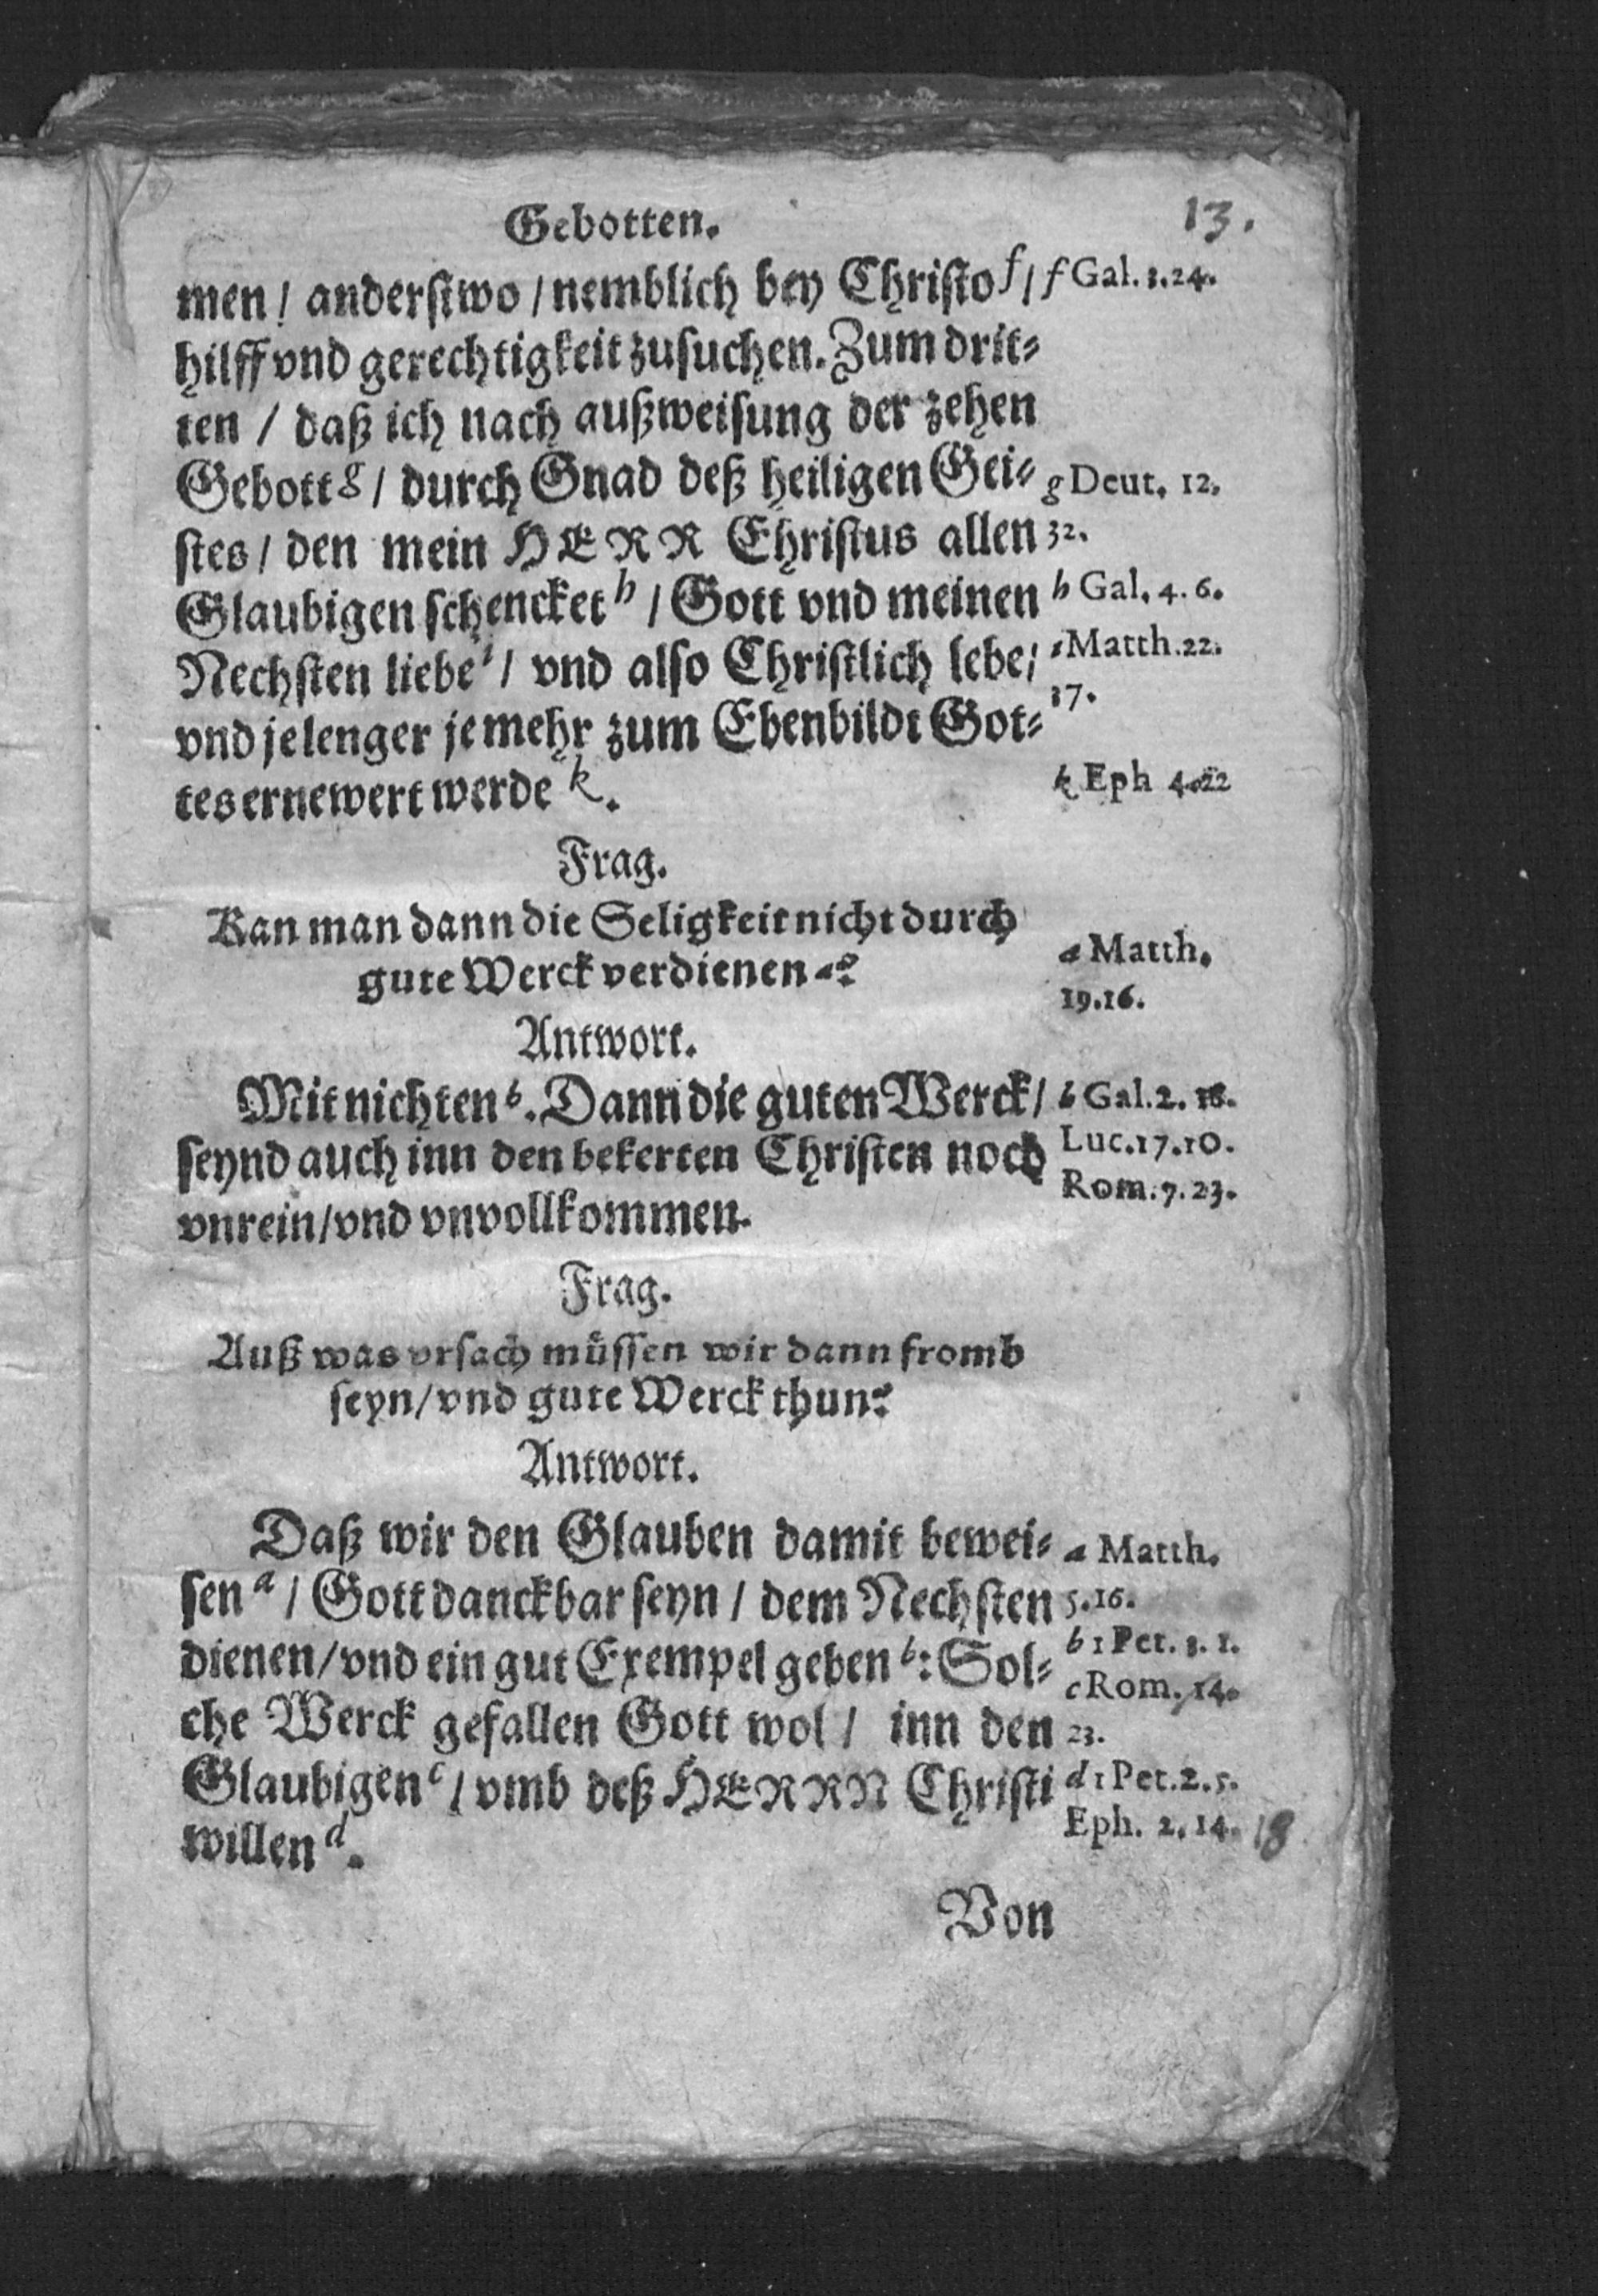 Gebotten.
13.
men / anderstwo / nemblich bey Christo f /
hilff vnd gerechtigkeit zusuchen. Zum drit-
ten / daß ich nach außweisung der zehen
Gebott g / durch Gnad deß heiligen Gei-
stes / den mein HERR Christus allen
Glaubigen schencket h / Gott vnd meinen
Nechsten liebe i / vnd also Christlich lebe /
vnd je lenger je mehr zum Ebenbildt Got-
tes ernewert werde k.
f Gal. 3.24.
g Deut. 12.
32.
h Gal. 4. 6.
i Matth. 22.
37.
k Eph 4.22
Frag.
Kan man dann die Seligkeit nicht durch
gute Werck verdienen a?
a Matth.
19.16.
Antwort.
Mit nichten b. Dann die guten Werck /
seynd auch inn den bekerten Christen noch
vnrein / vnd vnvollkommen.
b Gal. 2. 16.
Luc. 17. 10.
Rom. 7. 23.
Frag.
Auß was vrsach müssen wir dann fromb
seyn / vnd gute Werck thun?
Antwort.
Daß wir den Glauben damit bewei-
sen a / Gott danckbar seyn / dem Nechsten
dienen / vnd ein gut Exempel geben b: Sol-
che Werck gefallen Gott wol / inn den
Glaubigen c / vmb deß HERRN Christi
willen d.
a Matth.
5.16.
b 1 Pet. 3. 1.
c Rom. 14.
23.
d 1 Pet. 2. 5.
Eph. 2. 14. 18
Von